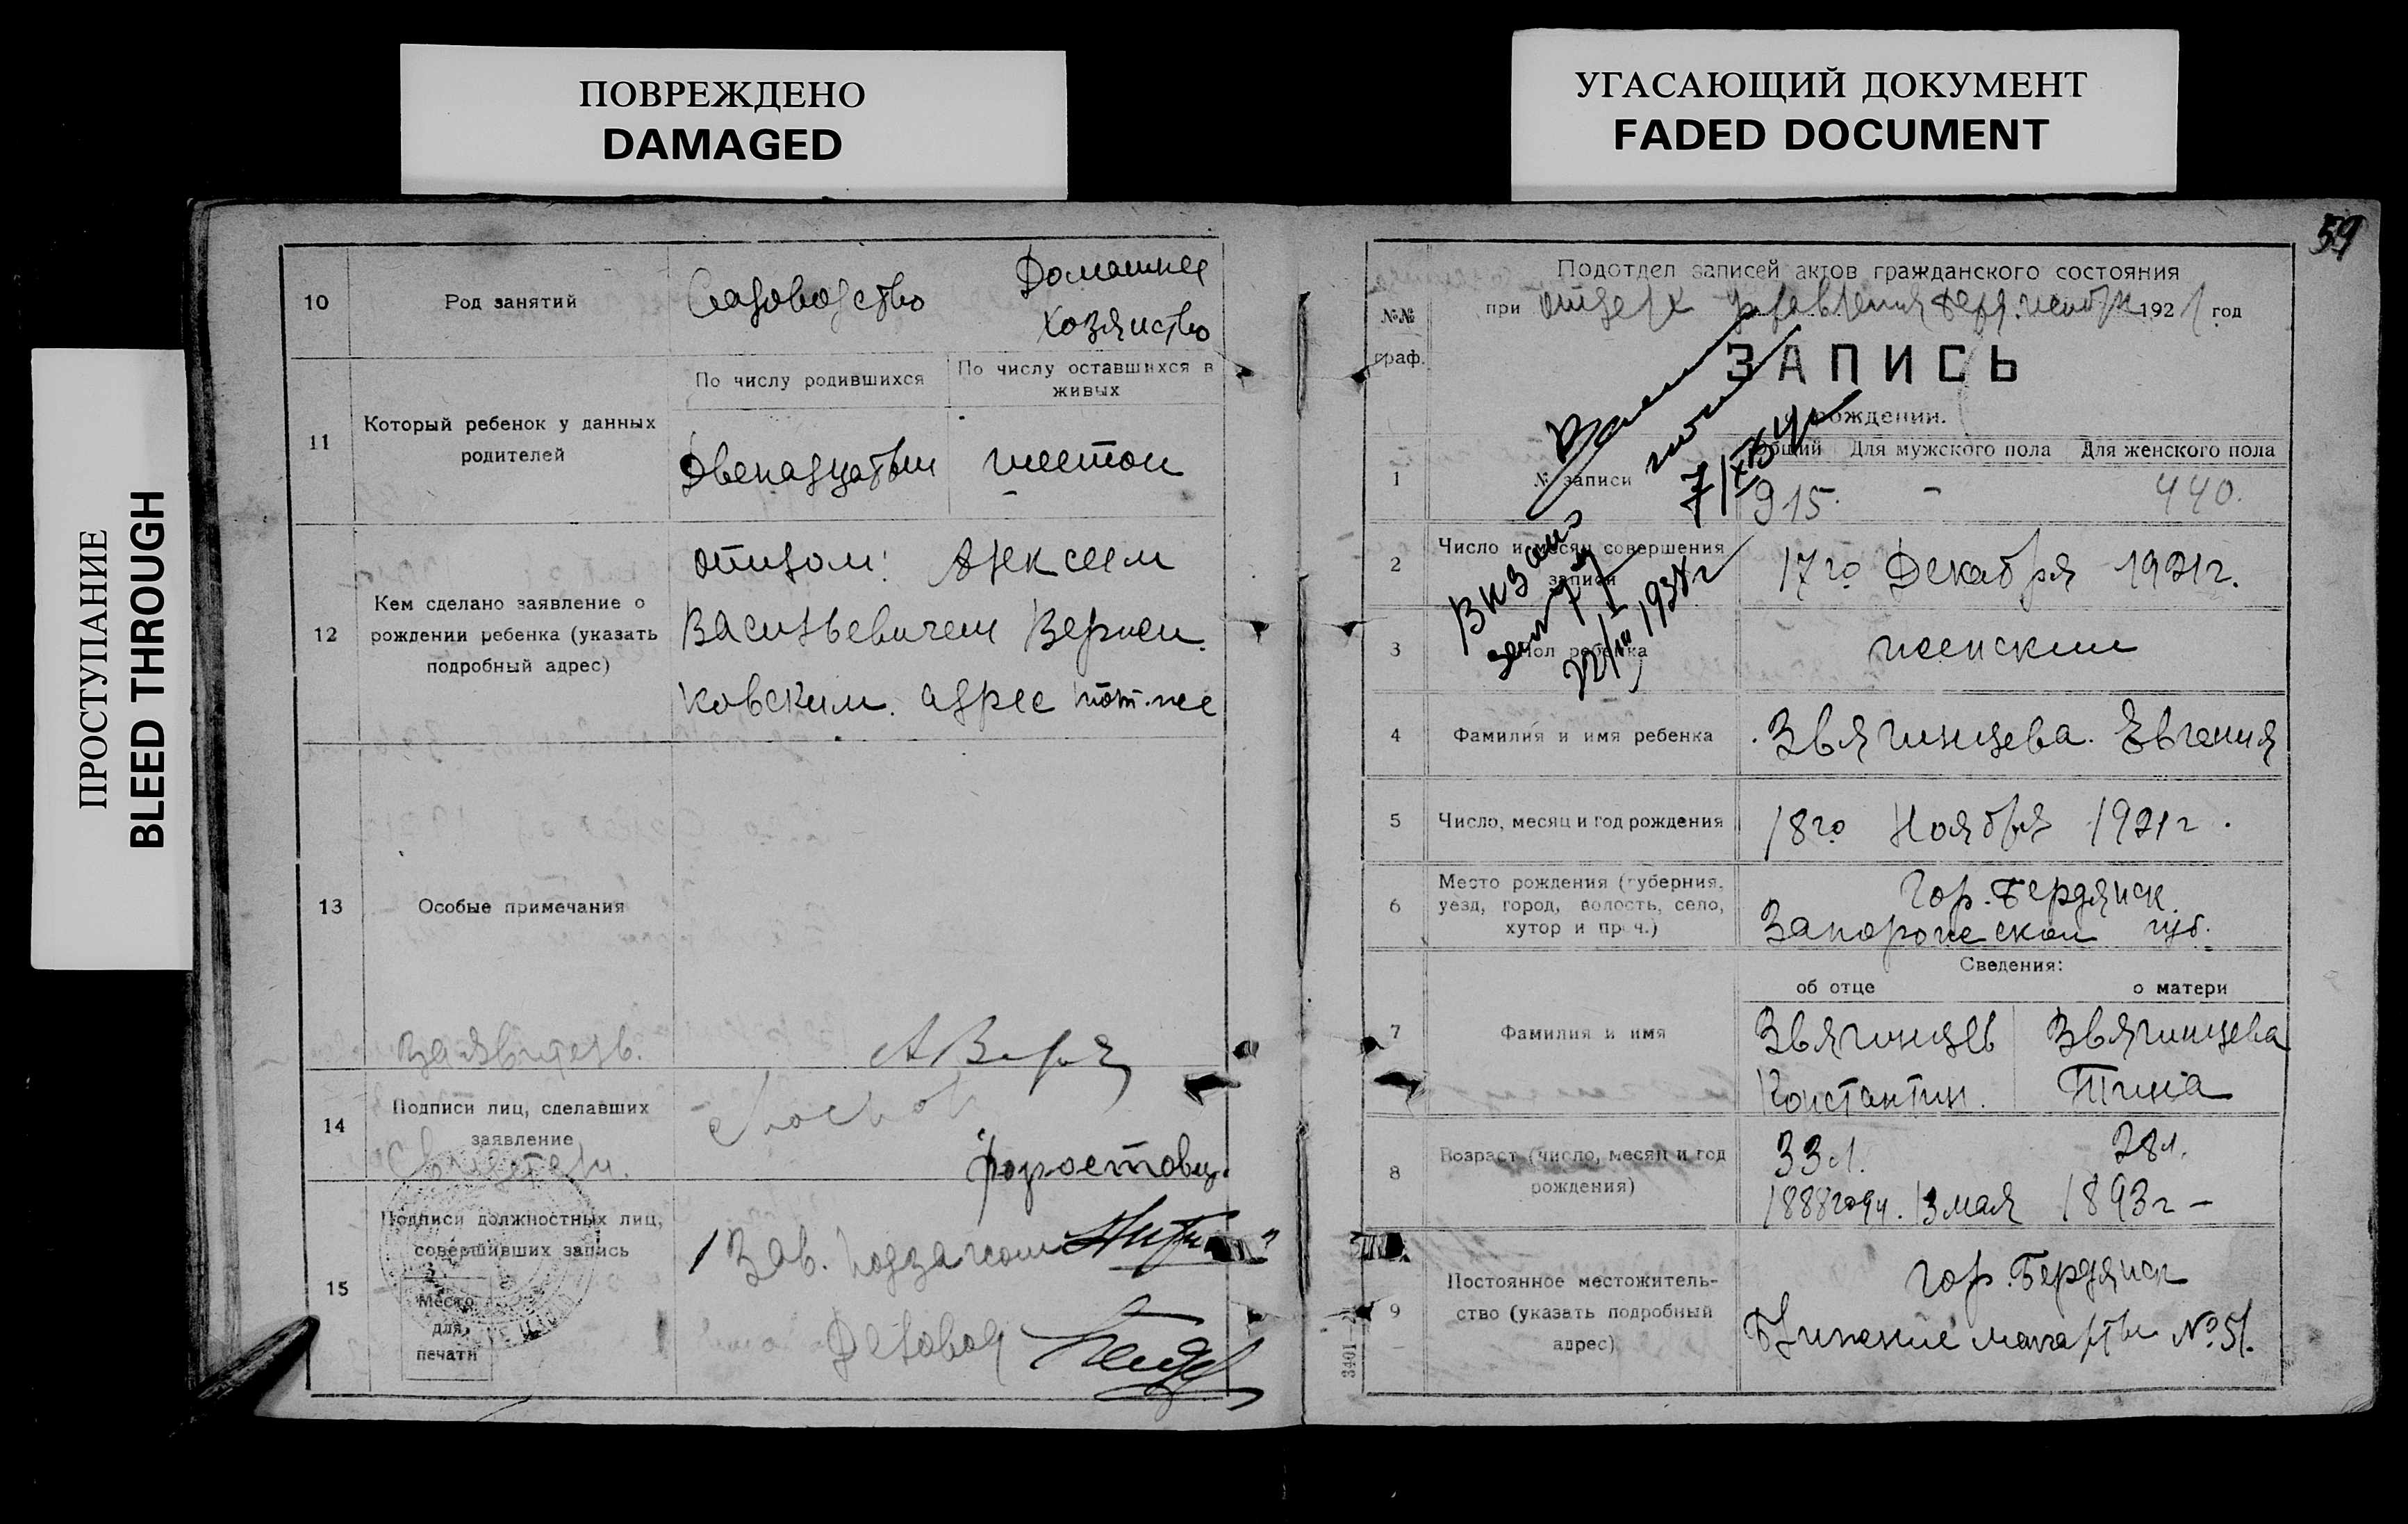 ПОВРЕЖДЕНО
DAMAGED
УГАСАЮЩИЙ ДОКУМЕНТ
FADED DOCUMENT
ПРОСТУПАНИЕ
BLEED THROUGH
10
Род занятий
Садоводство
Домашнее
хозяиство
11
Который ребенок у данных
родителей
По числу родившихся
По числу оставшихся в
живых
Двенадцатыи
шестои
12
Кем сделано заявление о
рождении ребенка (указать
подробный адрес)
отцом: Алексеем
Васильевичем
ковским. адрес тот-же
13
Особые примечания
Заявитель.
14
Подписи лиц, сделавших
заявление
Свидетели.
15
Подписи должностных лиц,
совершивших запись
Место
для
печати
Зав. Подзагсом
Деловод
59
№№
граф.
Подотдел записей актов гражданского состояния
при отделе управления 1921 год
ЗАПИСЬ
рождении.
1
№ записи
Общий
Для мужского пола
Для женского пола
915.
-
440.
2
Число и месяц совершения
записи
17го Декабря 1921г.
3
Пол ребенка
женскии
7/XI
22/III 1938г
4
Фамилия и имя ребенка
Звягинцева. Евгения
5
Число, месяц и год рождения
18го Ноября 1921г.
6
Место рождения (губерния,
уезд, город, волость, село,
хутор и проч.)
Гор. Бердянск
Запорожескои губ.
Сведения:
об отце
о матери
7
Фамилия и имя
Звягинцев
Константин.
Звягинцева
Тина
8
Возраст (число, месяц и год
рождения)
33 л.
1888 году. 13 мая
28 л.
1893г -
9
Постоянное местожитель-
ство (указать подробный
адрес)
гор. Бердянск
Ближение макорты №51.
3401